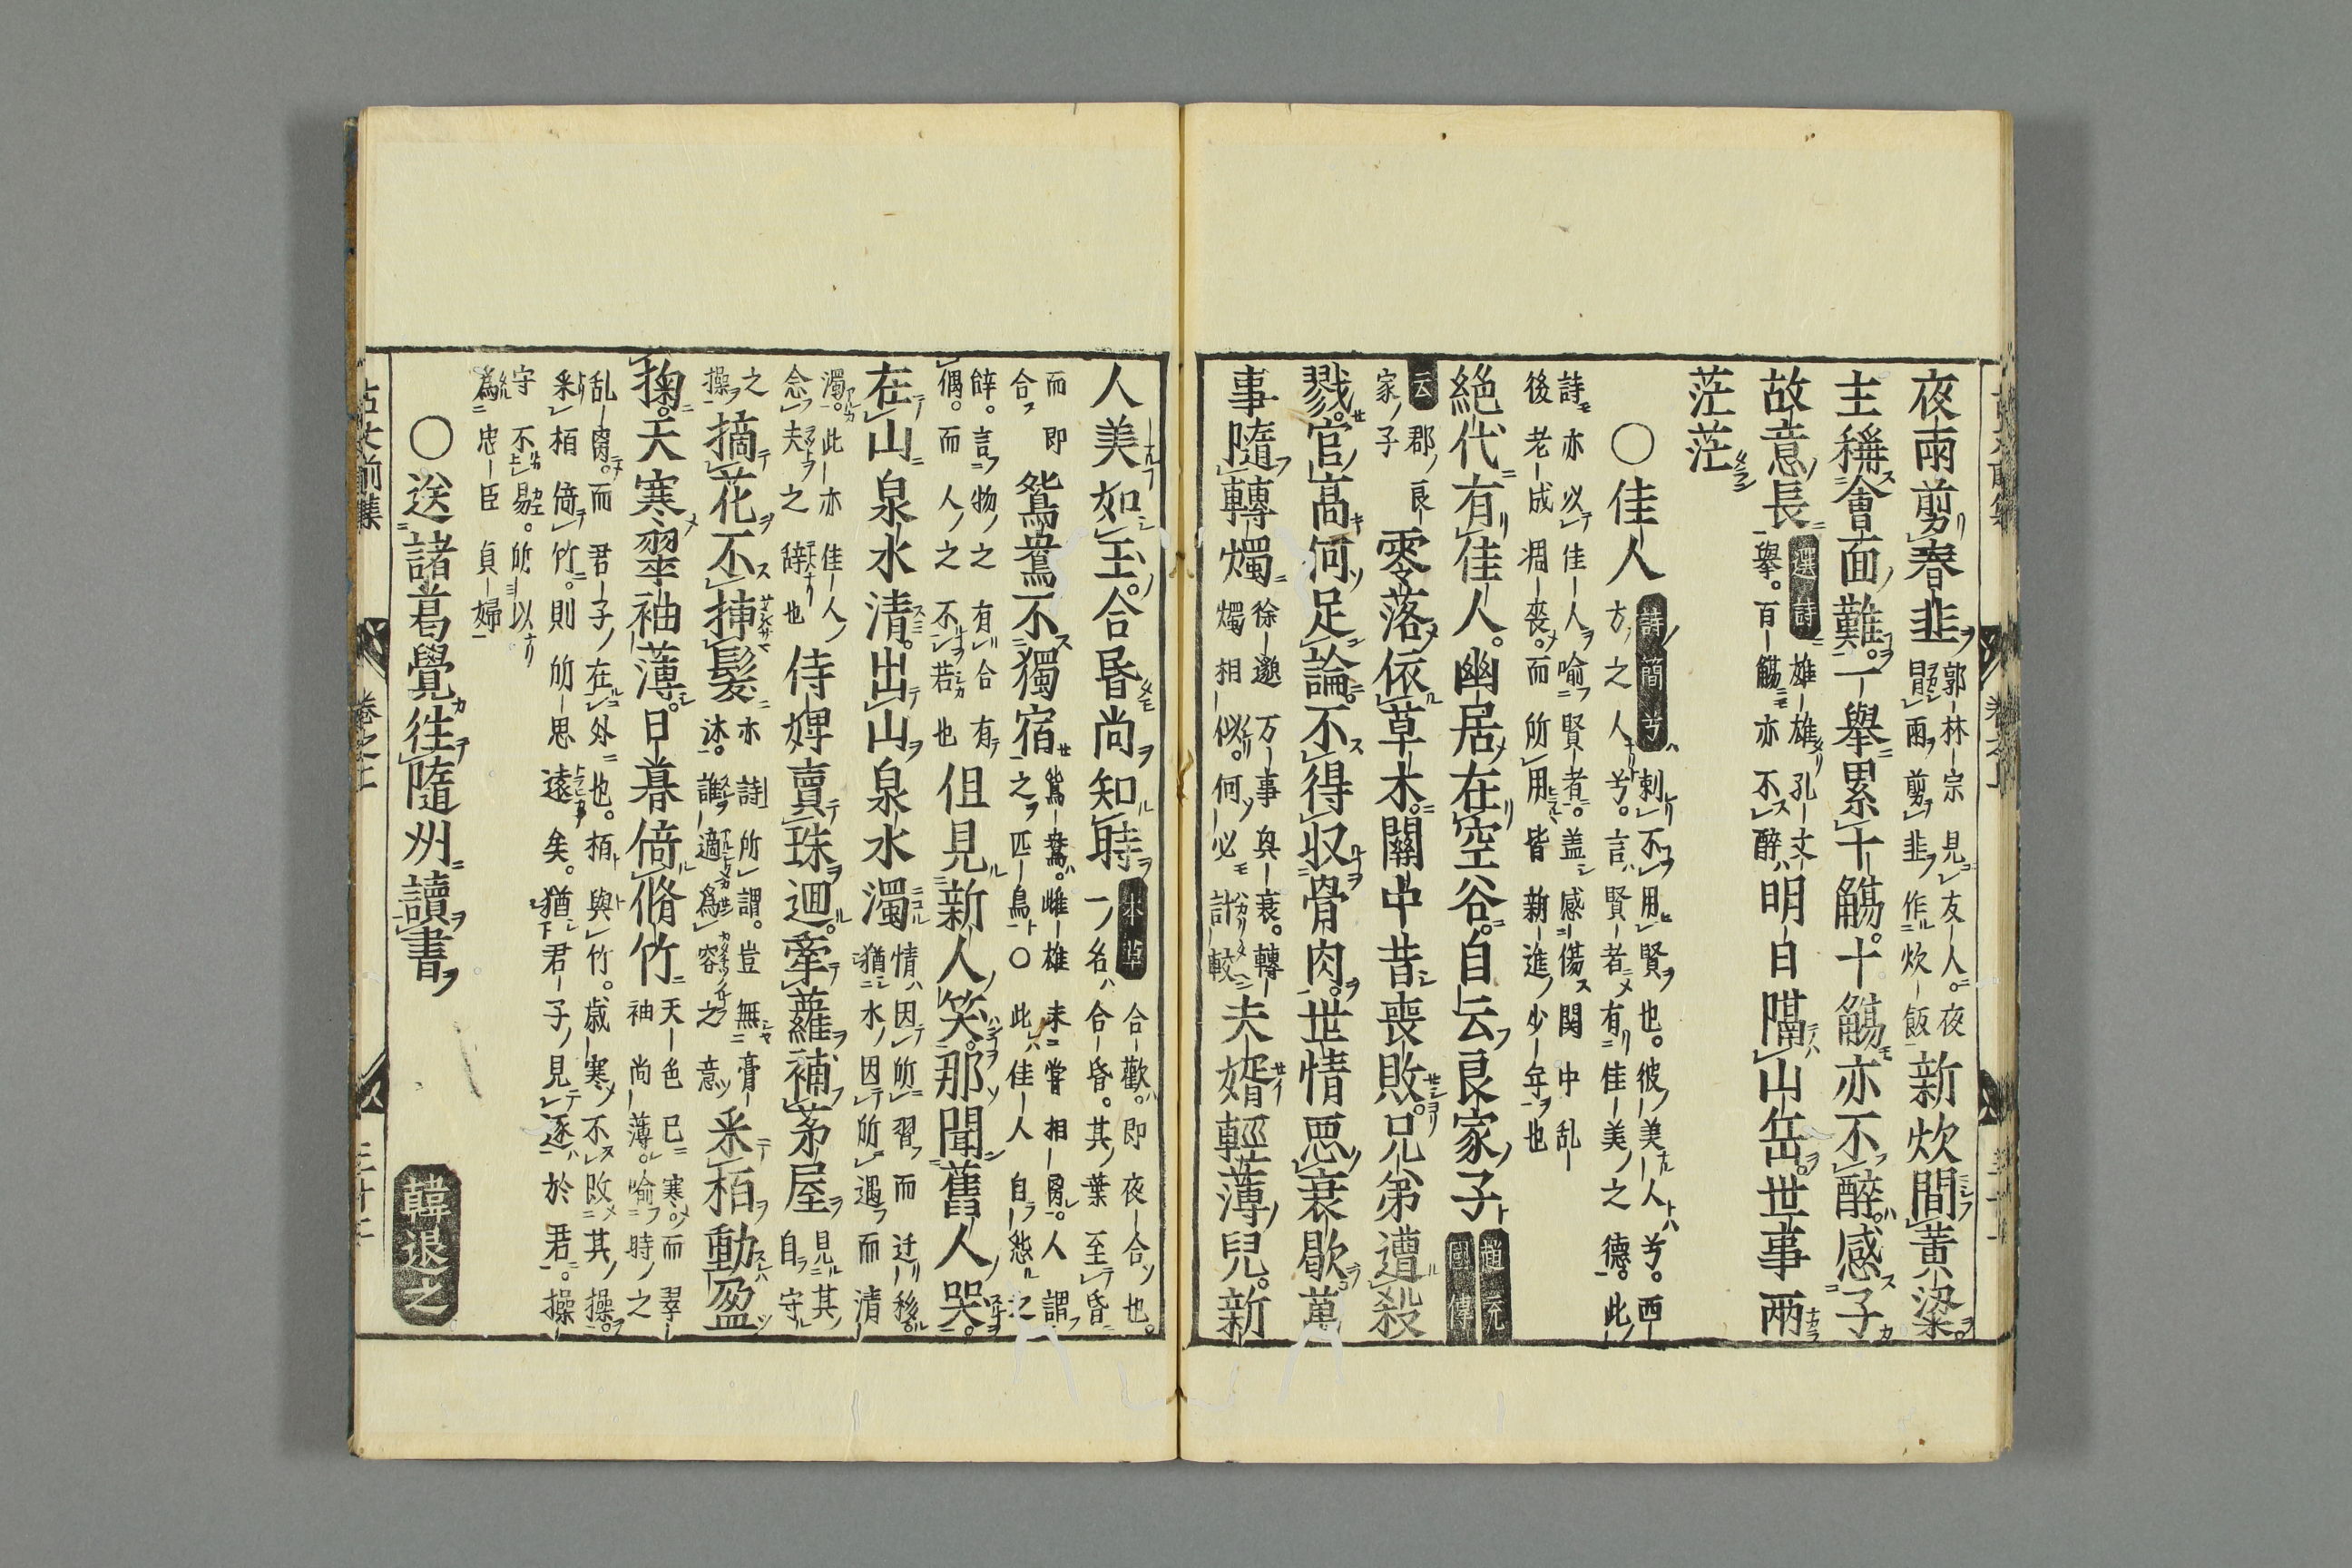 夜雨剪春韭
郭林宗見友人夜
冒雨剪韭作炊飯
新炊間黃粱
主稱會面難一舉累十觴十觴亦不醉感子
故意長
選詩雄雉孔丈
舉百觴亦不醉
明日隔山岳世事兩
茫茫
○佳人
詩簡兮刺不用賢也彼美人兮西
方之人兮言賢者有佳美之德此
詩亦以佳人喻賢者盖感傷関中乱
後老成凋喪而所用皆新進少年也
絕代有佳人幽居在空谷自云良家子
趙充
國傳
云郡良
家子
零落依草木關中昔喪敗兄弟遭殺
戮官高何足論不得收骨肉世情惡衰歇萬
事隨轉燭
徐邈万事與衰轉
燭相似何必計較
夫婿輕薄兒新
人美如玉合昏尚知時
本草合歡即夜合也
一名合昏其葉至昏
而即
合
鴛鴦不獨宿
鴛鴦雌雄未嘗相
之匹鳥○此佳人自愁之
辞言物之有合有
偶而人之不若也
但見新人笑那聞舊人哭
在山泉水清出山泉水濁
情因所習而迁移
猶水因所遇而清
濁此亦佳人
念夫之辞也
侍婢賣珠迴牽蘿補茅屋
見其
自守
之
操
摘花不插髮
亦詩所謂豈無膏
沐誰適為容之意
采栢動盈
掬天寒翠袖薄日暮倚脩竹
天色已寒而翠
袖尚薄喻時之
乱而君子在外也栢與竹歲寒不改其操
采栢倚竹則所思遠矣猶君子見逐於君操
守不易所以
為忠臣貞婦
○送諸葛覺往隨州讀書
韓退之